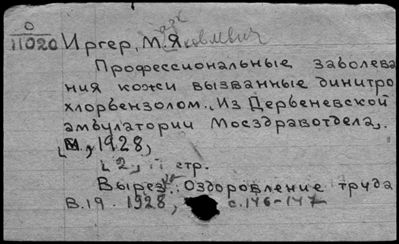 О
11020 Иргер, М. Яковлевич
Профессиональные заболева
ния кожи вызванные динитро
хлорбензолом. Из Дербеневской
амбулатории Мосздравотдела.
[М., 1928,
[2, стр.
Вырез. Оздоровление труда
в.19. 1928, с.146-147